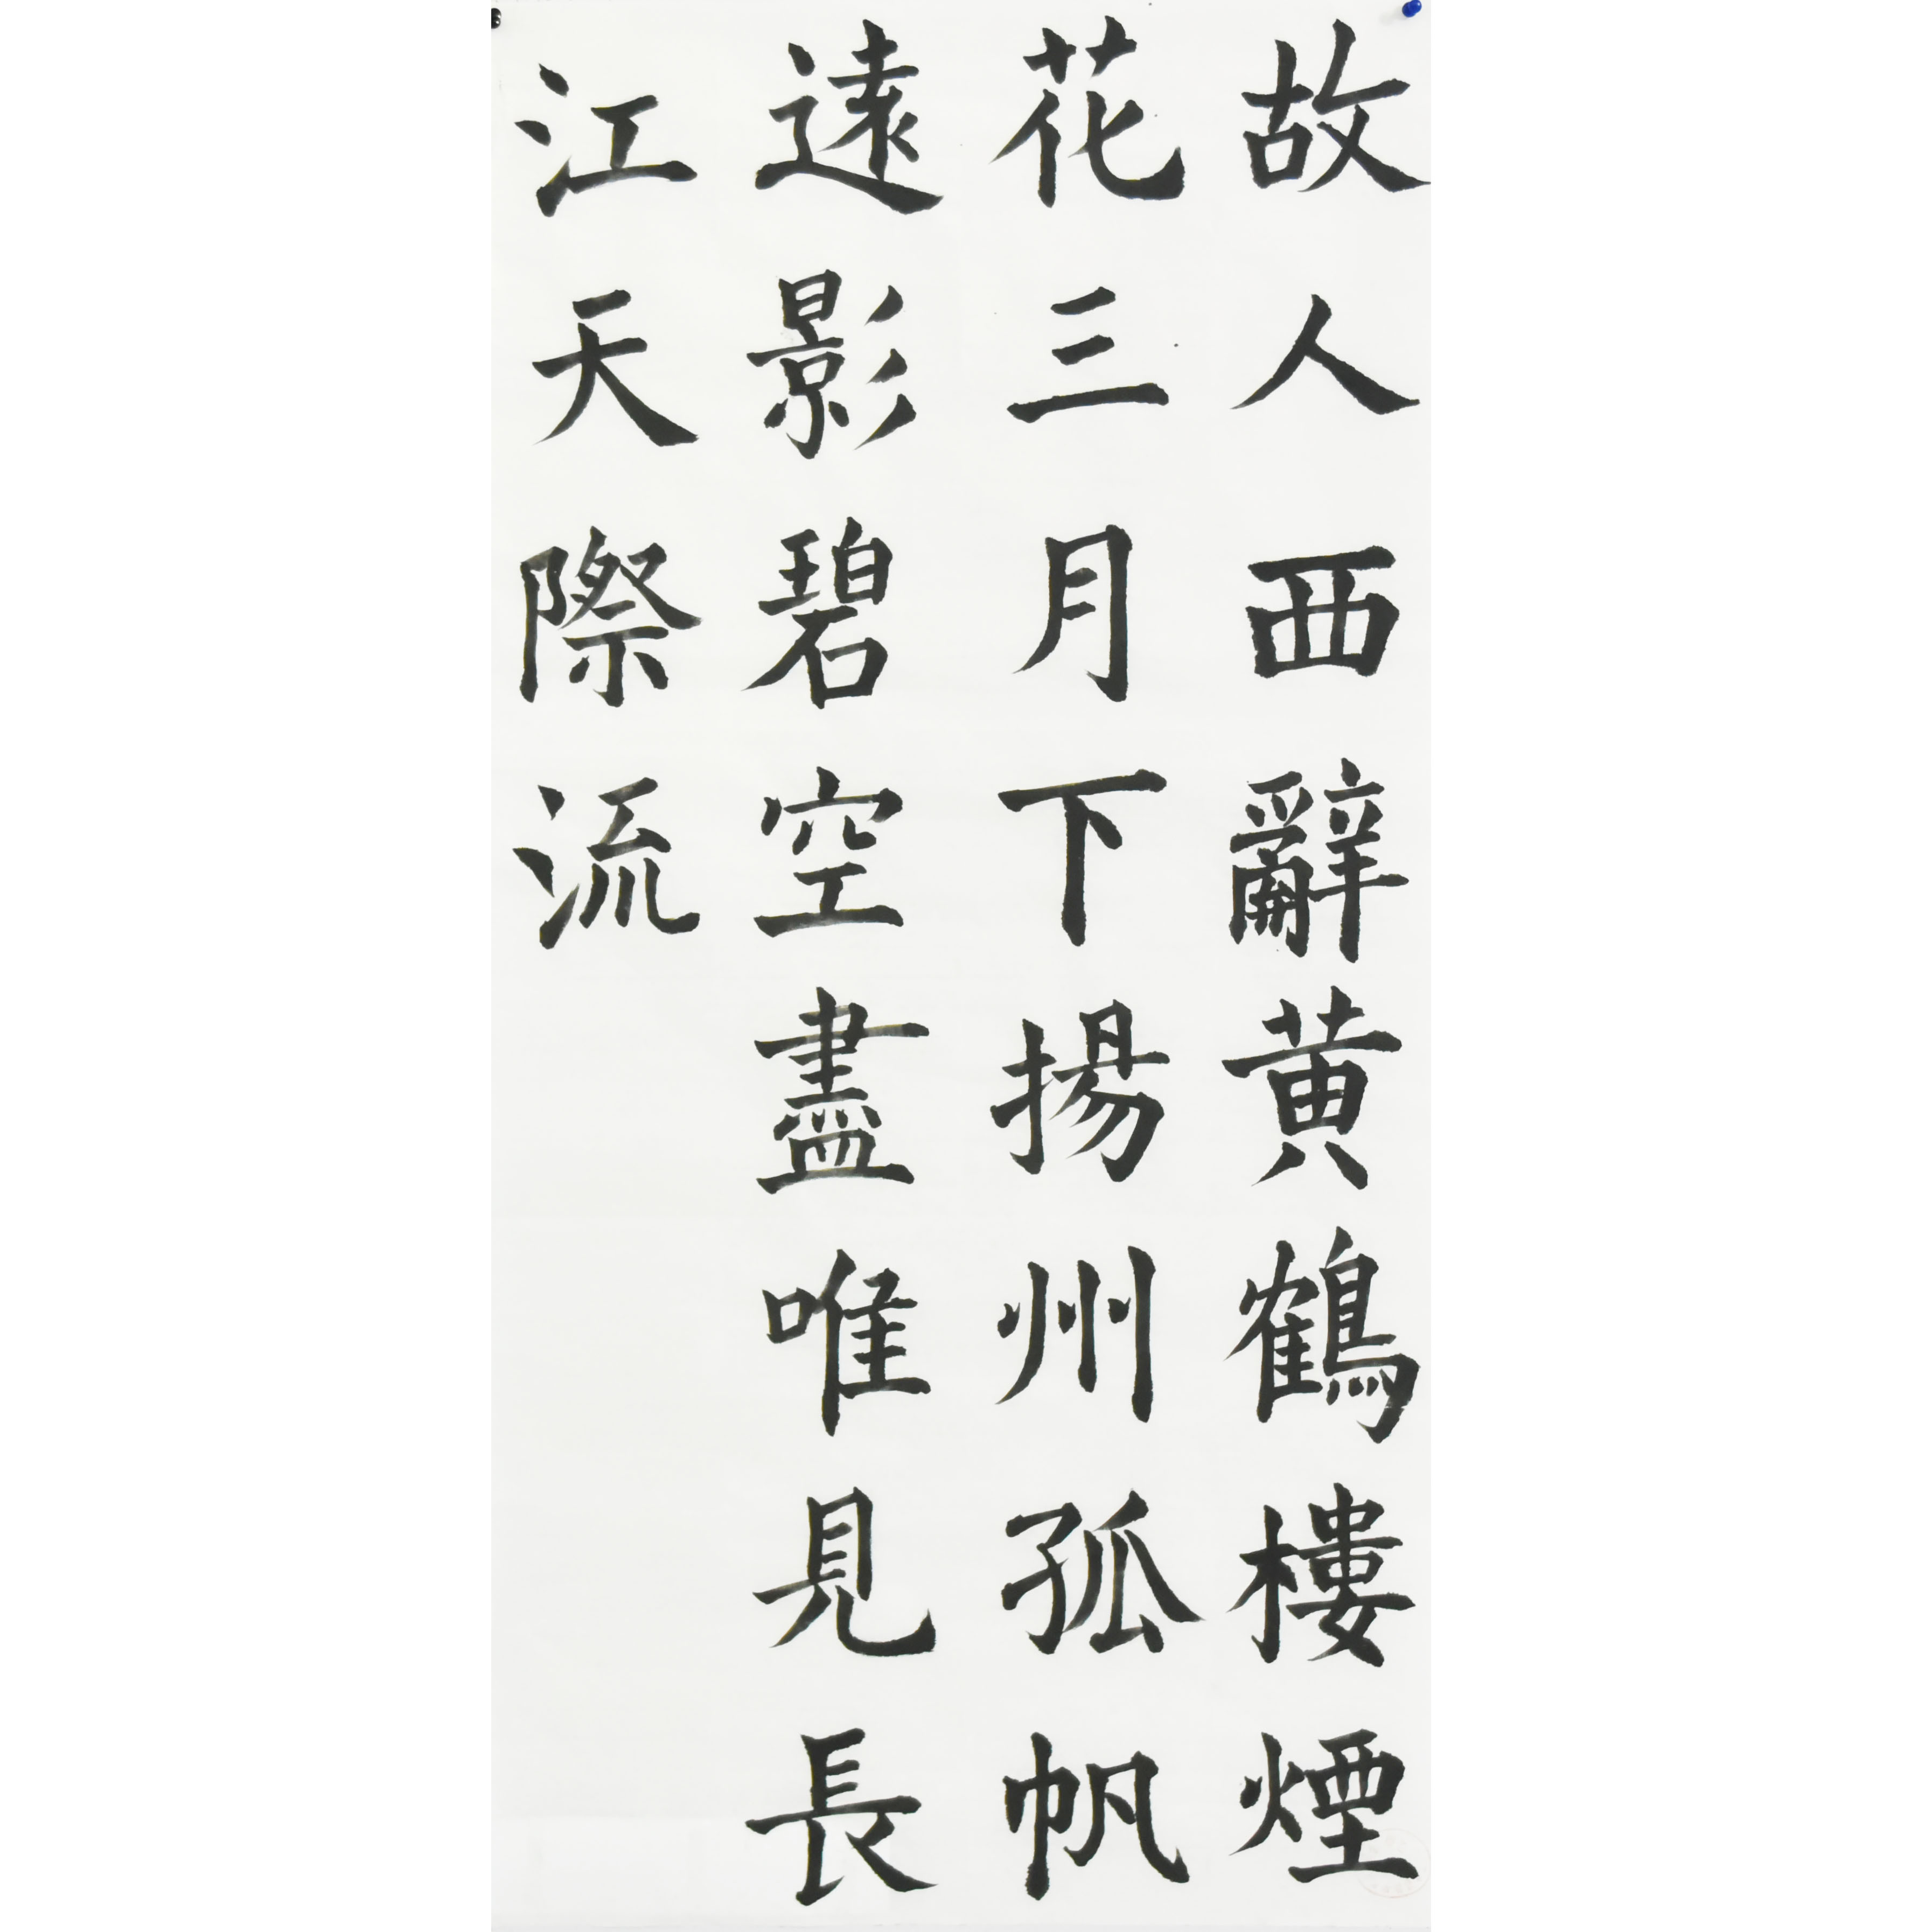 故人西辭黄鶴樓煙
花三月下揚州孤帆
遠影碧空盡唯見長
江天際流